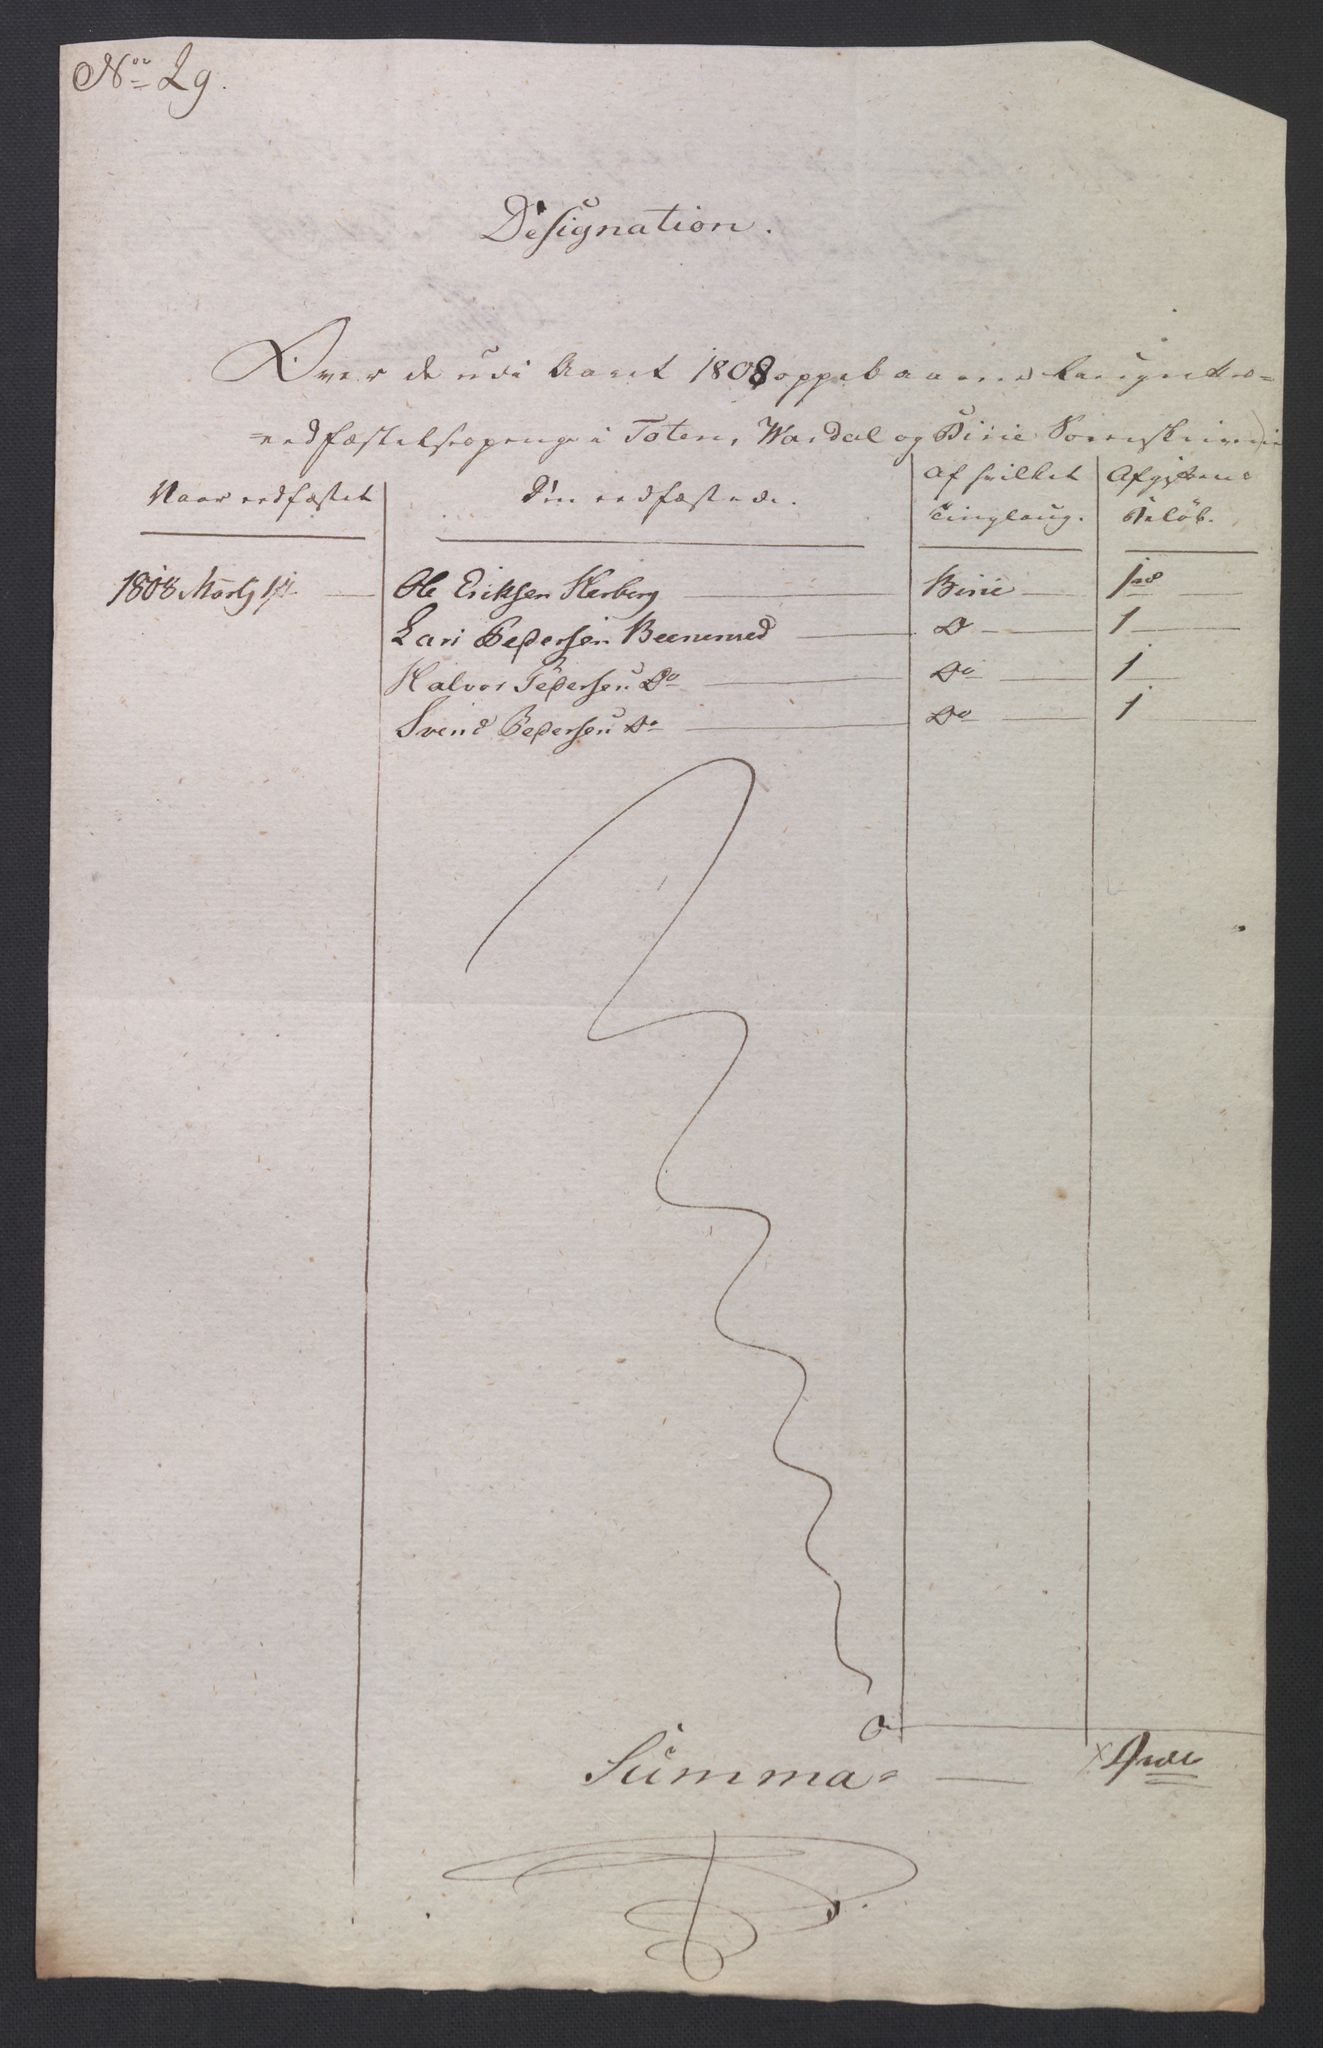 No 29.
Designation.
Over de udi Aaret 1808 oppebaarne
edfæstelsespenge i Toten, Wardal og Birie Sorenskriverie
Naar eedfæstet
Den eedfæstede.
Af hvilket Tinglaug.
Afgiftens Beløb.
1808 Marty Ole Eriksen Birie 1 rd
Lars Pedersen Do 1
Halvor Pedersen Do Do 1
Svend Pedersen Do Do 1
Summa 4 rdl